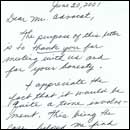 June 20, 2001
Dear Mr. Advocat,
The purpose of this letter
is to thank you for
meeting with us and
for your honesty.
I appreciate the
fact that it would be
quite a time involve-
ment. This being the
case